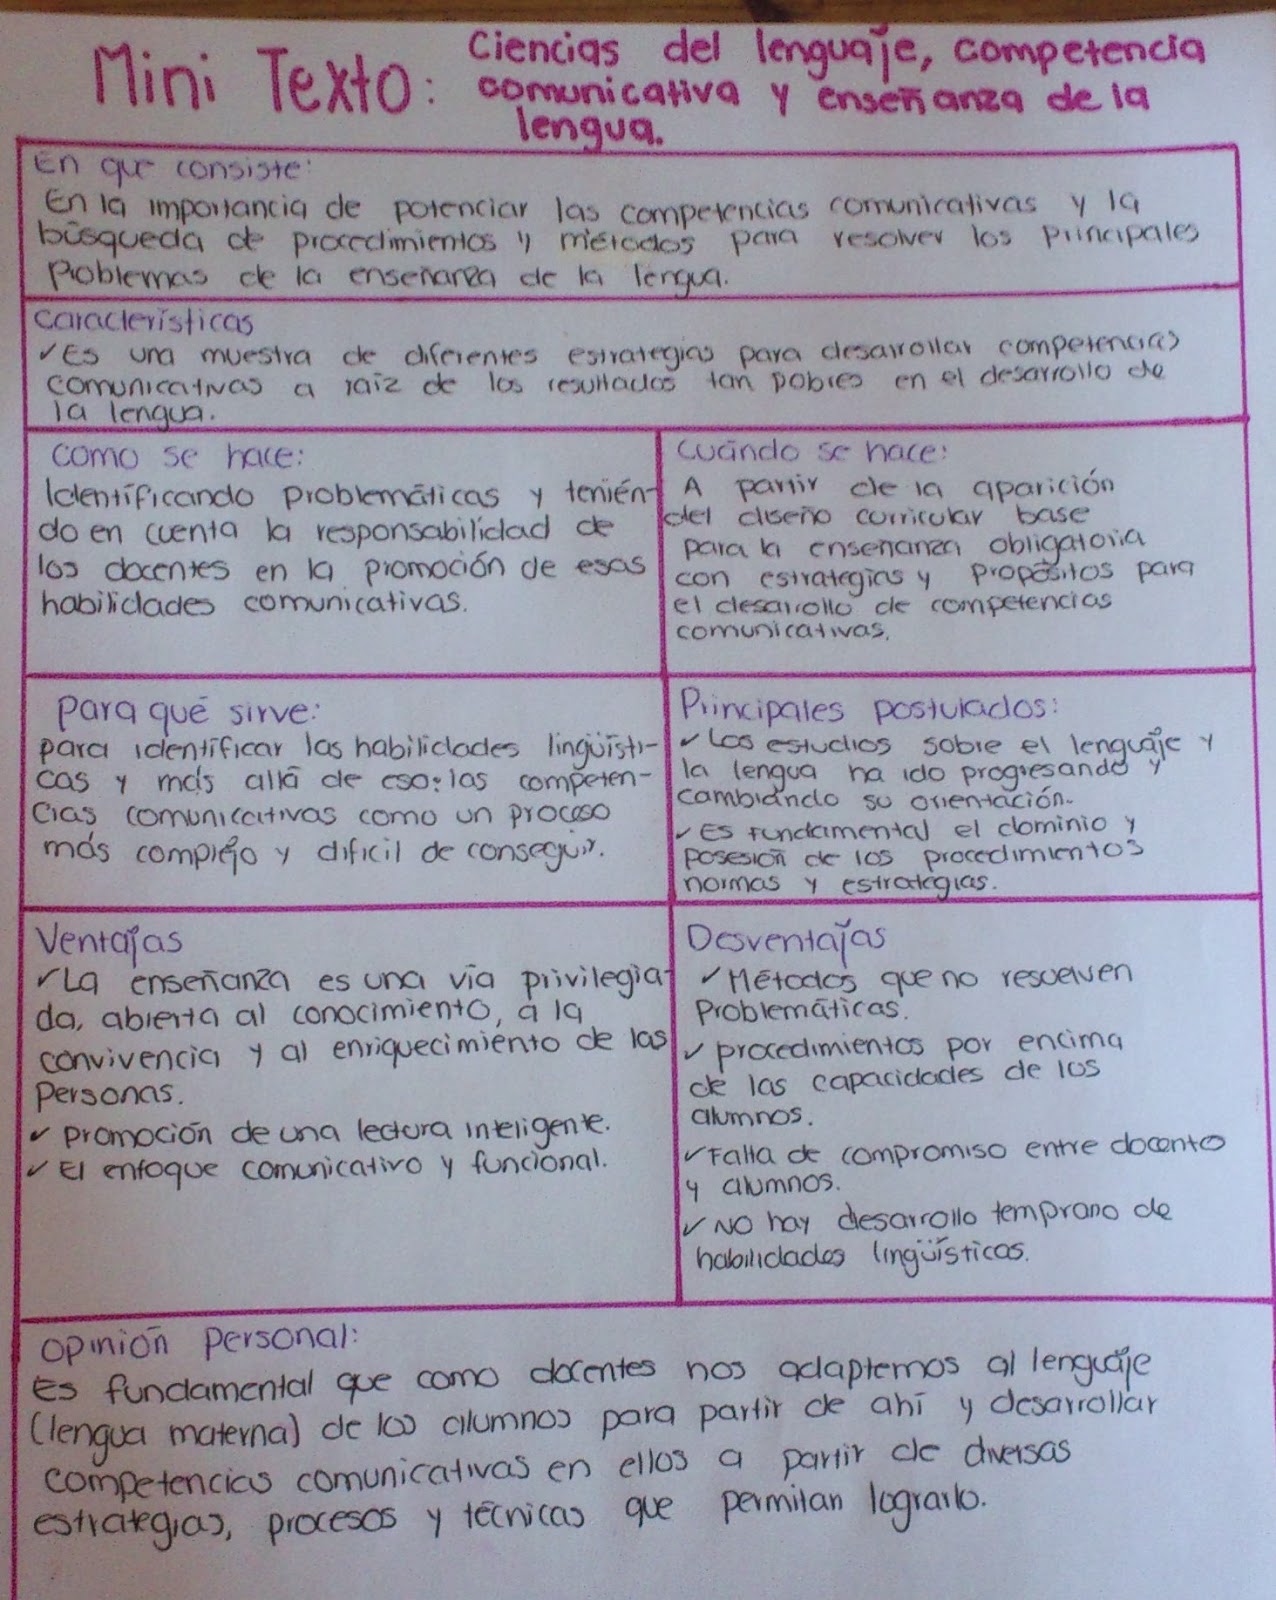 Mini Texto: Ciencias del lenguaje, competencia
comunicativa y enseñanza de la
lengua.
En que consiste:
En la importancia de potenciar las competencias comunicativas y la
búsqueda de procedimientos y métodos para resolver los principales
problemas de la enseñanza de la lengua.
Características
✓Es una muestra de diferentes estrategias para desarrollar competencias
comunicativas a raíz de los resultados tan pobres en el desarrollo de
la lengua.
Como se hace:
Identificando problemáticas y tenién-
do en cuenta la responsabilidad de
los docentes en la promoción de esas
habilidades comunicativas.
Cuándo se hace:
A partir de la aparición
del diseño curricular base
para la enseñanza obligatoria
con estrategias y propósitos para
el desarrollo de competencias
comunicativas.
Para qué sirve:
para identificar las habilidades lingüísti-
cas y más allá de eso: las competen-
cias comunicativas como un proceso
más complejo y dificil de conseguir.
Principales postulados:
✓Los estudios sobre el lenguaje y
la lengua ha ido progresando y
cambiando su orientación.
✓Es fundamental el dominio y
posesión de los procedimientos
normas y estrategias.
Ventajas
✓La enseñanza es una vía privilegia-
da, abierta al conocimiento, a la
convivencia y al enriquecimiento de las
personas.
✓ promoción de una lectura inteligente.
✓ El enfoque comunicativo y funcional.
Desventajas
✓Métodos que no resuelven
problemáticas.
✓ procedimientos por encima
de las capacidades de los
alumnos.
✓Falta de compromiso entre docente
y alumnos.
✓ No hay desarrollo temprano de
habilidades lingüísticas.
Opinión personal:
Es fundamental que como docentes nos adaptemos al lenguaje
(lengua materna) de los alumnos para partir de ahí y desarrollar
competencias comunicativas en ellos a partir de diversas
estrategias, procesos y técnicas que permitan lograrlo.